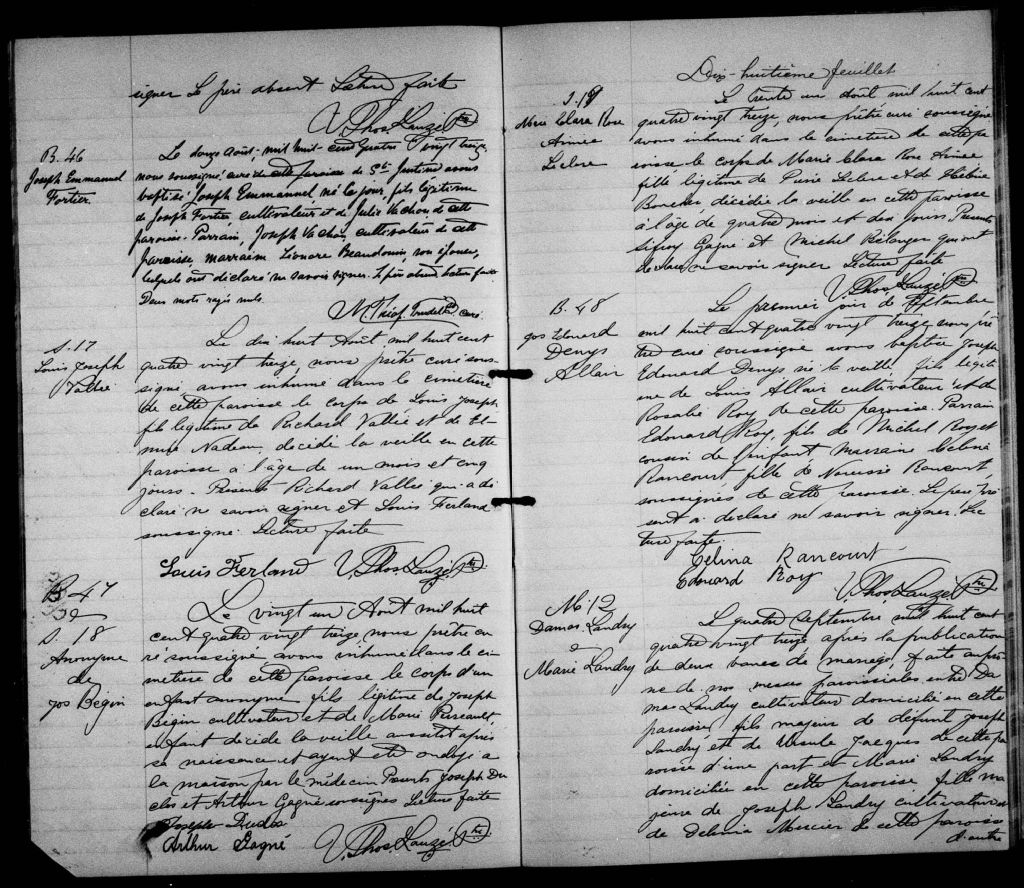 signer le père absent Lecture faite
V. Thos Lauzé Ptre
B. 46
Joseph Emmanuel
Fortier
Le douze Août, mil huit-cent quatre vingt treize,
nous soussigné, curé de cette paroisse de Ste Justine avons
baptisé Joseph Emmanuel, né le jour, fils légitime
de Joseph Fortier cultivateur et de Julie Vachon de cette
paroisse. Parrain, Joseph Vachon cultivateur de cette
paroisse, marraine Léonore Beaudouin son épouse,
lesquels ont déclaré ne savoir signer. Le père absent lecture faite
Deux mots rayés nuls.
Trudel curé
S. 17
Louis Joseph
Vallée
Le dix huit Août mil huit cent
quatre vingt treize, nous prêtre curé sous-
signé, avons inhumé dans le cimetière
de cette paroisse le corps de Louis Joseph
fils légitime de Richard Vallée et de
Nadeau, décédé la veille en cette
paroisse à l'âge de un mois et cinq
jours. Présents Richard Vallée qui a dé
claré ne savoir signer et Louis Ferland
soussigné. Lecture faite
Louis Ferland V. Thos Lauzé Ptre
B. 47
&
S. 18
Anonyme
de
Jos Bégin
Le vingt un Août mil huit
cent quatre vingt treize nous prêtre cu
ré soussigné avons inhumé dans le ci
metière de cette paroisse le corps d'un
enfant anonyme fils légitime de Joseph
Bégin cultivateur et de Marie Perreault,
enfant décédé la veille aussitôt après
sa naissance et ayant été ondoyé à
la maison par le médecin Présents Joseph Du
clos et Arthur Gagné soussignés Lecture faite
Joseph Duclos
Arthur Gagné V. Thos Lauzé Ptre
Dix-huitième feuillet
S. 19
Marie Clara Rose
Aimée
Leclerc
Le trente un août mil huit cent
quatre vingt treize, nous prêtre curé soussigné
avons inhumé dans le cimetière de cette pa
roisse le corps de Marie Clara Rose Aimée
fille légitime de Pierre Leclerc et de
Boucher décédée la veille en cette paroisse
à l'âge de quatre mois et dix jours. Présents
Gagné et Michel Bélanger qui ont
déclaré ne savoir signer Lecture faite
V. Thos Lauzé Ptre
B. 48
Jos Edouard
Denys
Allair
Le premier jour de Septembre
mil huit cent quatre vingt treize nous prê
tre curé soussigné avons baptisé Joseph
Edouard Denys né la veille fils légiti
me de Louis Allair cultivateur et de
Rosalie Roy de cette paroisse. Parrain
Edouard Roy, fils de Michel Roy et
cousin de l'enfant Marraine Celina
Rancourt fille de Narcisse Rancourt,
soussignés de cette paroisse. Le père pré
sent a déclaré ne savoir signer. Lec
ture faite.
Celina Rancourt
Edouard Roy V. Thos Lauzé Ptre
M. 12
Damas Landry
&
Marie Landry
Le quatre Septembre mil huit cent
quatre vingt treize après la publication
de deux bancs de mariage, faite au prô
ne de nos messes paroissiales entre Da
mas Landry cultivateur domicilié en cette
paroisse fils majeur de défunt Joseph
Landry et de Ursule Jacques de cette pa
roisse d'une part et Marie Landry
domiciliée en cette paroisse fille ma
jeure de Joseph Landry cultivateur et
de Mercier de cette paroisse
d'autre